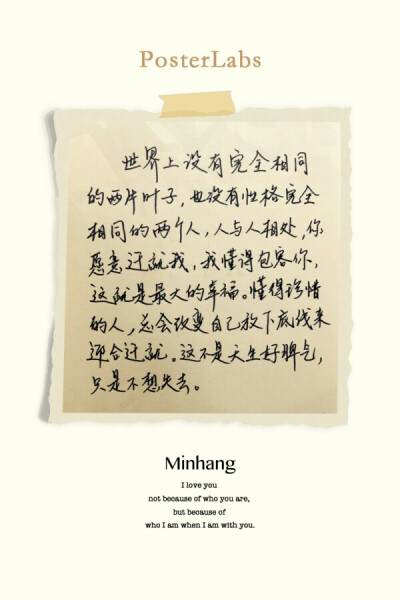 PosterLabs
世界上没有完全相同
的两片叶子，也没有性格完全
相同的两个人，人与人相处，你
愿意迁就我，我懂得包容你，
这就是最大的幸福。懂得珍惜
的人，总会改变自己放下底线来
迎合迁就。这不是天生好脾气，
只是不想失去。
Minhang
I love you
not because of who you are,
but because of
who I am when I am with you.